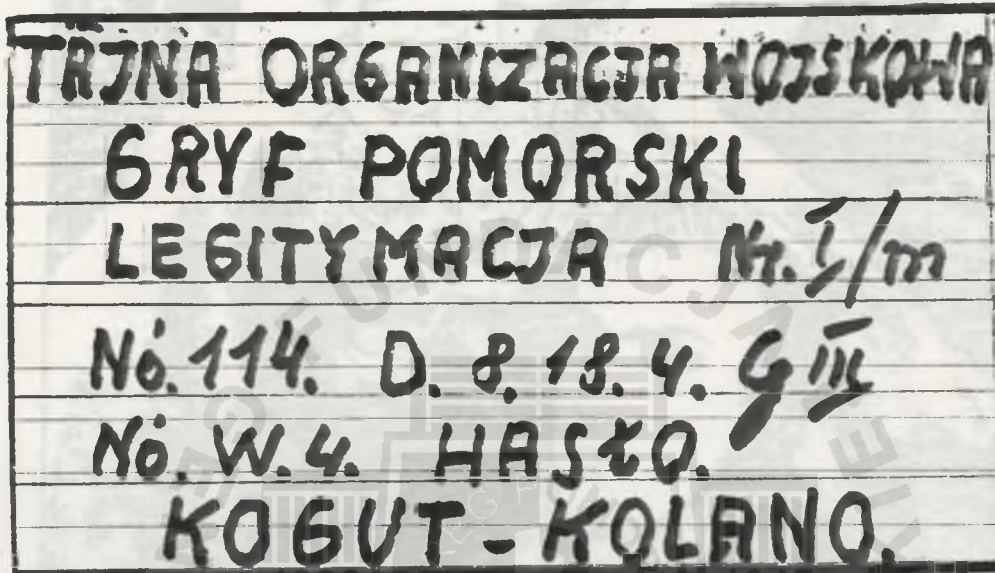 TAJNA ORGANIZACJA WOJSKOWA
GRYF POMORSKI
LEGITYMACJA Nr. I/m
Nó. 114. D. 8. 18. 4. G III
Nó. W. 4. HASŁO.
KOGUT - KOLANO.